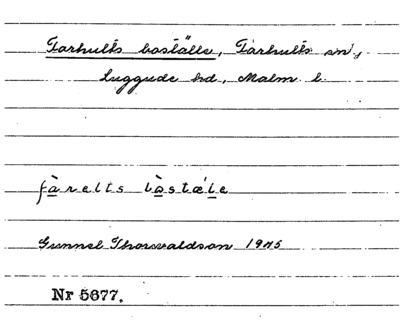 Farhults boställe, Farhults sn,
Luggude hd, Malm. l.
fàrelts bòstæ̀le
Gunnel Thorwaldson 1945
Nr 5677.